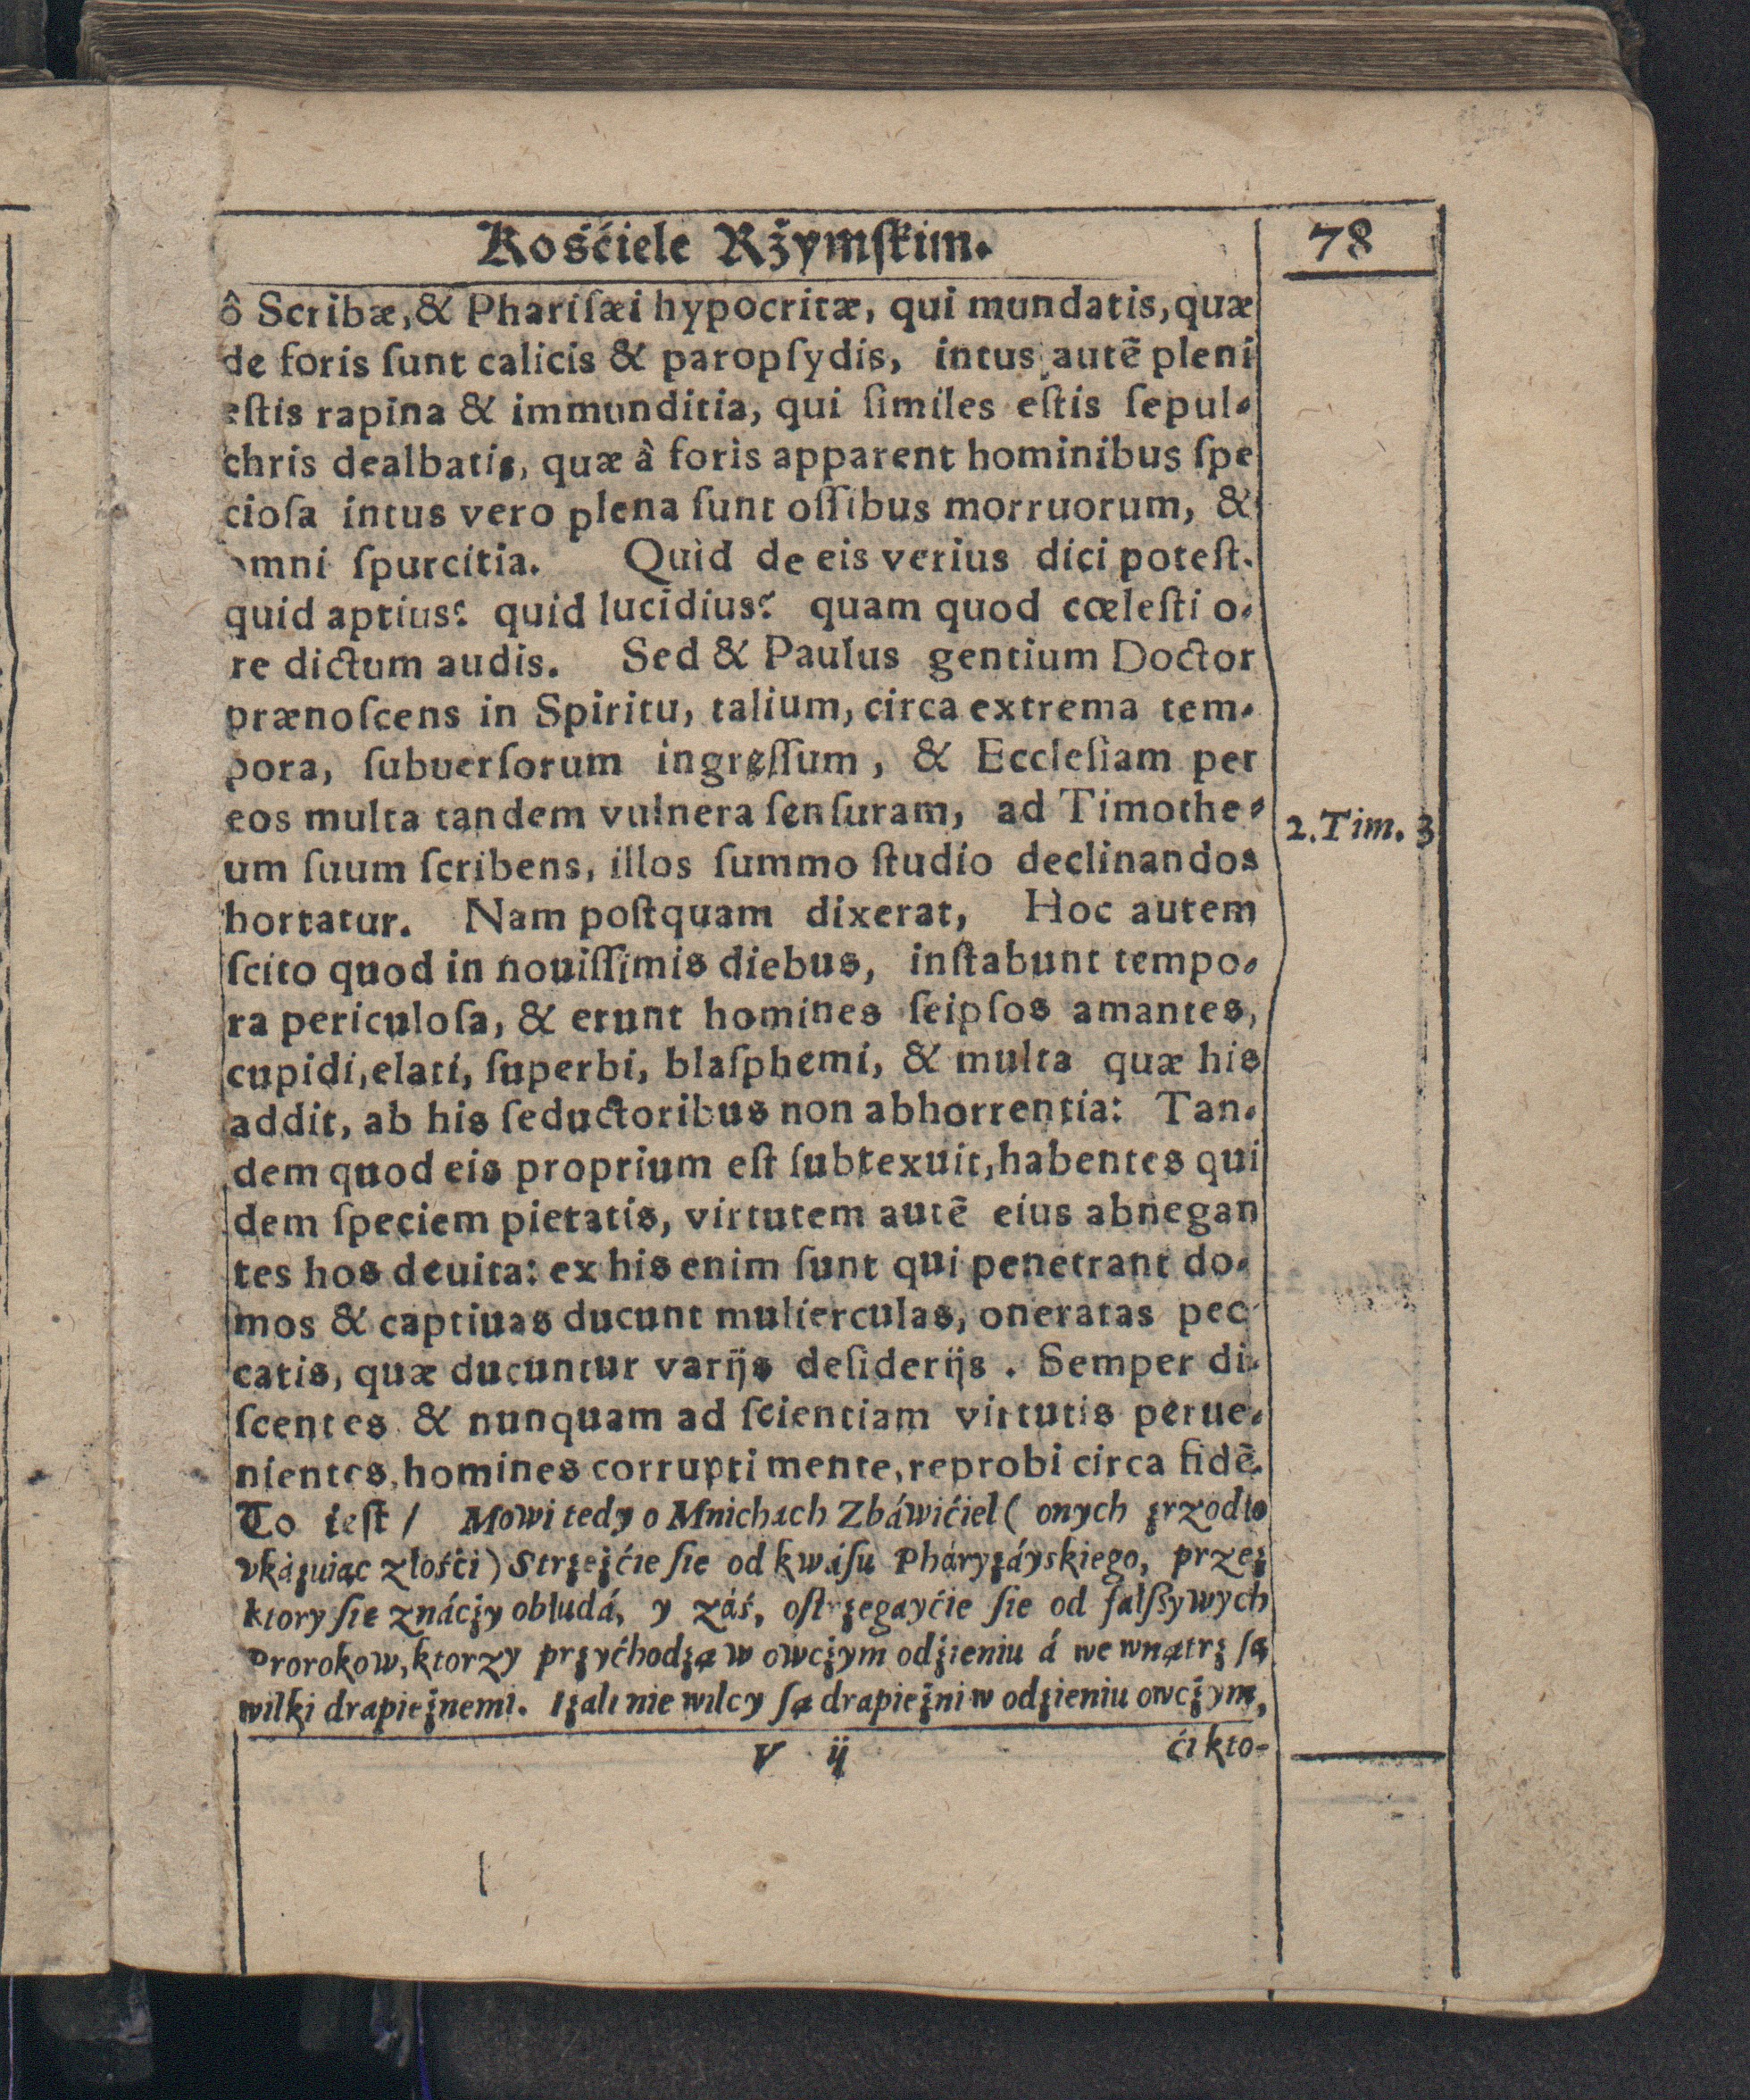 Kośćiele Rżymſkim.
78
ô Scribæ,& Phariſæi hypocritæ, qui mundatis,quæ
de foris ſunt calicis & paropſydis, intus autē pleni
eſtis rapina & immunditia, qui ſimiles eſtis ſepul-
chris dealbatis, quæ â foris apparent hominibus ſpe
cioſa intus vero plena ſunt oſſibus morruorum, &
omni ſpurcitia. Quid de eis verius dici poteſt.
quid aptius? quid lucidius? quam quod cœleſti o-
re dictum audis. Sed & Paulus gentium Doctor
prænoſcens in Spiritu, talium, circa extrema tem-
pora, ſubuerſorum ingreſſum, & Eccleſiam per
eos multa tandem vulnera ſenſuram, ad Timothe-
2.Tim. 3
um ſuum ſcribens, illos ſummo ſtudio declinandos
hortatur. Nam poſtquam dixerat, Hoc autem
ſcito quod in nouiſſimis diebus, inſtabunt tempo-
ra periculoſa, & erunt homines ſeipſos amantes,
cupidi,elati, ſuperbi, blaſphemi, & multa quæ his
addit, ab his ſeductoribus non abhorrentia: Tan-
dem quod eis proprium eſt ſubtexuit,habentes qui
dem ſpeciem pietatis, virtutem autē eius abnegan
tes hos deuita: ex his enim ſunt qui penetrant do-
mos & captiuas ducunt mulierculas, oneratas pec
catis, quæ ducuntur varijs deſiderijs . Semper di-
ſcentes & nunquam ad ſcientiam virtutis perue-
nientes,homines corrupti mente,reprobi circa fidē.
To ieſt / Mowi tedy o Mnichach Zbáwićiel ( onych źrzodło
vkázuiąc złośći) Strzeżćie ſie od kwáſu Pháryzáyskiego, przez
ktory ſie znáczy obłudá, y záś, oſtrzegayćie ſie od fałſßywych
Prorokow,ktorzy przychodzą w owczym odzieniu á we wnątrz ſą
wilki drapieżnemi. Izali nie wilcy ſą drapieżni w odzieniu owczym,
V ij
ći kto-